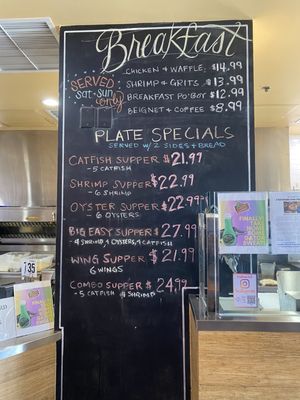 Breakfast
SERVED
SAT-SUN
ONLY
CHICKEN & WAFFLE $14.99
SHRIMP & GRITS $13.99
BREAKFAST PO'BOY $12.99
BEIGNET & COFFEE $8.99
PLATE SPECIALS
SERVED W/ 2 SIDES + BREAD
CATFISH SUPPER $21.99
- 5 CATFISH
SHRIMP SUPPER $22.99
- 6 SHRIMP
OYSTER SUPPER $22.99
- 6 OYSTERS
BIG EASY SUPPER $27.99
- 4 SHRIMP 4 OYSTERS, 4 CATFISH
WING SUPPER $21.99
6 WINGS
COMBO SUPPER $24.99
- 5 CATFISH 4 SHRIMP
35
FINALLY!